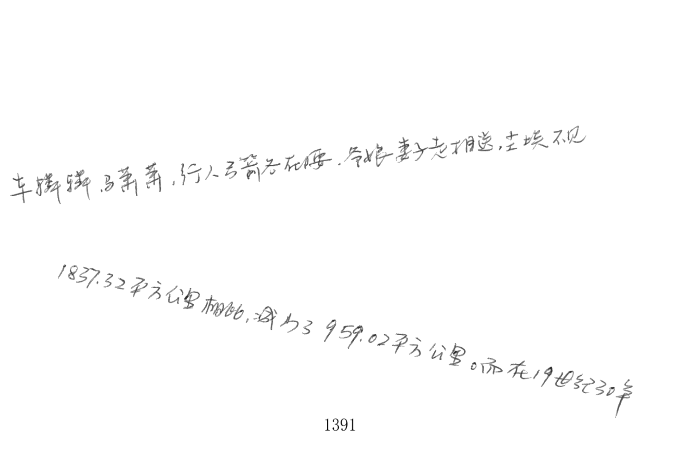 车辚辚,马萧萧,行人弓箭各在腰.爷娘妻子走相送,尘埃不见
1837.32平方公里相比,减少了959.02平方公里。而在19世纪30年
1391